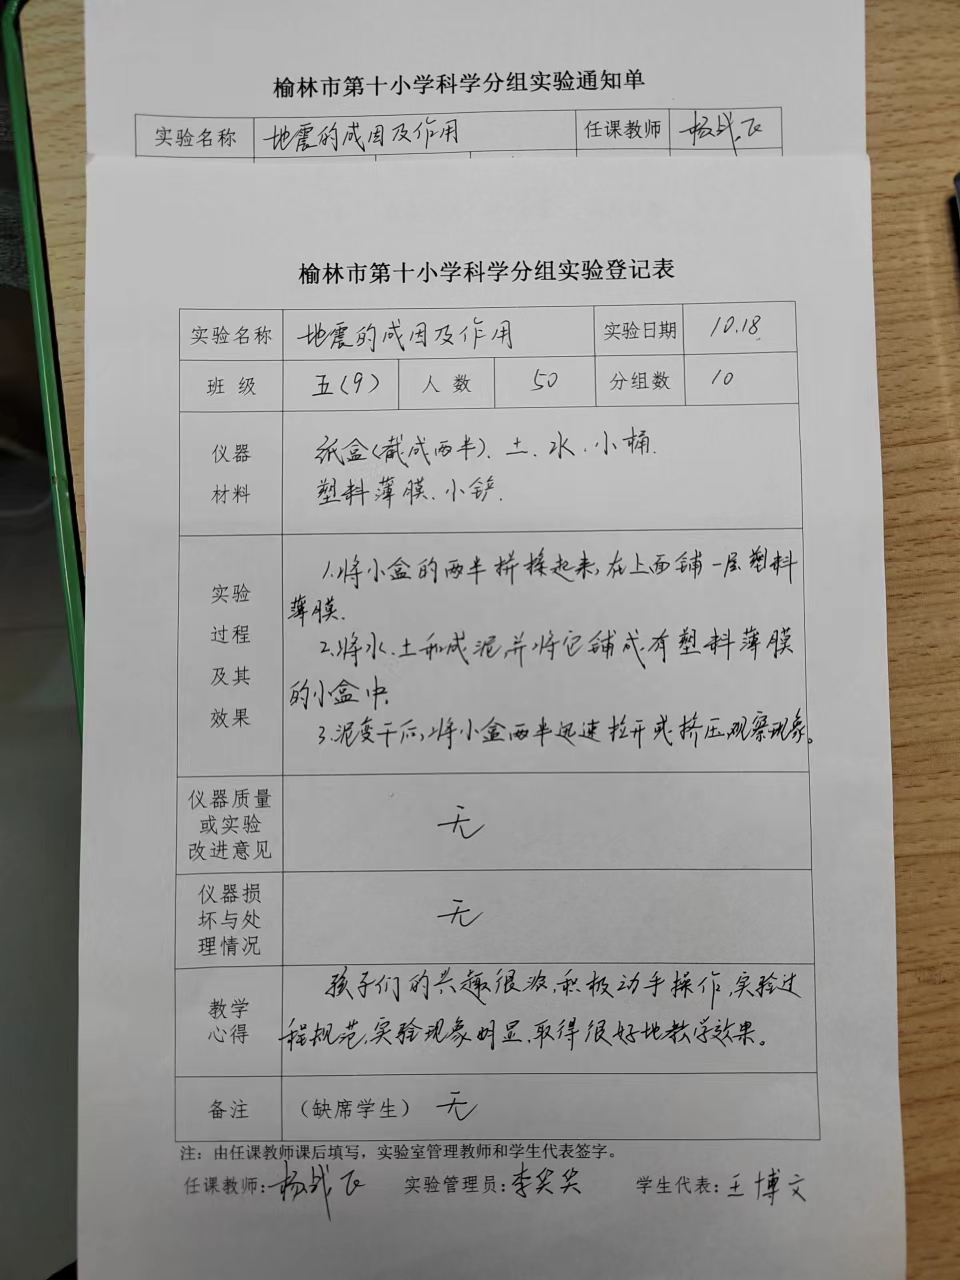 榆林市第十小学科学分组实验通知单
实验名称 地震的成因及作用 任课教师 杨战飞
榆林市第十小学科学分组实验登记表
实验名称 地震的成因及作用 实验日期 10.18
班级 五(9) 人数 50 分组数 10
仪器
材料
纸盒(裁成两半)、土、水、小桶.
塑料薄膜、小铲.
实验
过程
及其
效果
1.将小盒的两半拼接起来,在上面铺一层塑料
薄膜.
2.将水、土和成泥,并将它铺成有塑料薄膜
的小盒中.
3.泥变干后,将小盒两半迅速拉开或挤压,观察现象。
仪器质量
或实验
改进意见
无
仪器损
坏与处
理情况
无
教学
心得
孩子们的兴趣很浓,积极动手操作,实验过
程规范,实验现象明显,取得很好地教学效果。
备注 (缺席学生) 无
注：由任课教师课后填写，实验室管理教师和学生代表签字。
任课教师:杨战飞 实验管理员:李笑笑 学生代表:王博文